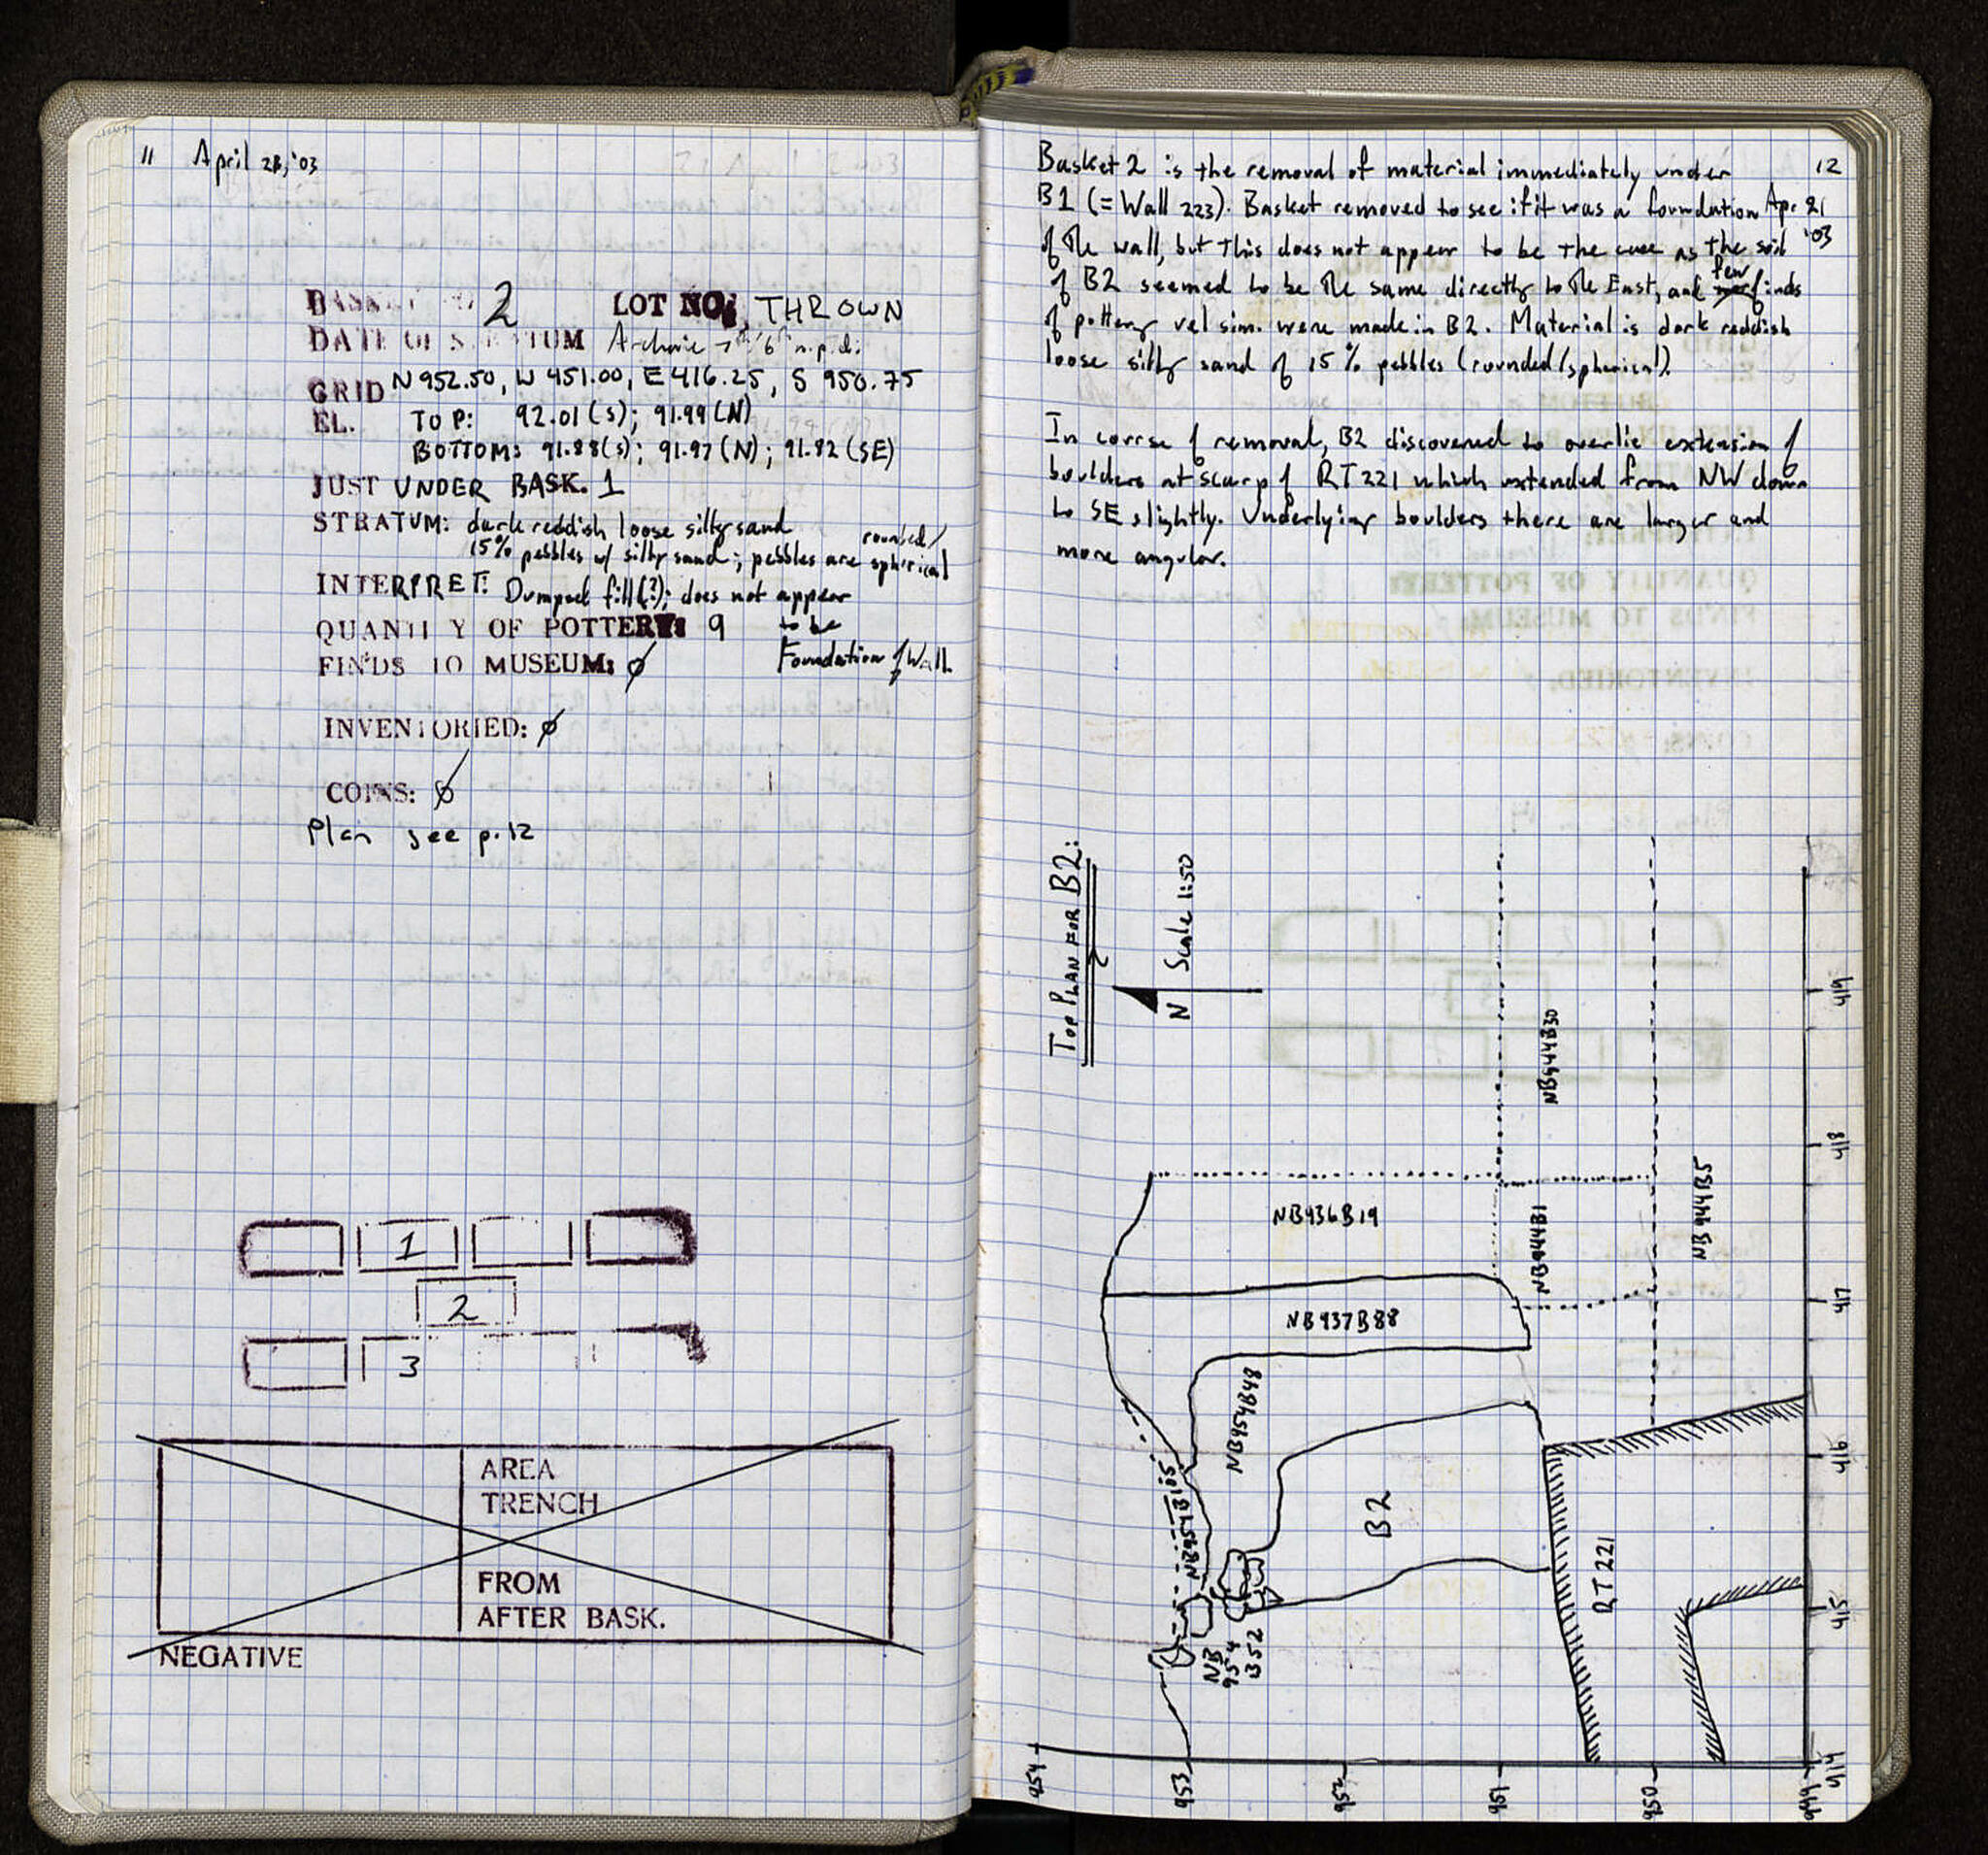 11 April 21, '03
BASKET NO. 2 LOT NO: THROWN
DATE OF STRATUM Archaic 7th/6th n.p.d.
GRID N 952.50, W 451.00, E 416.25, S 950.75
EL. TOP: 92.01 (S); 91.99 (N)
BOTTOM: 91.88(S); 91.97 (N); 91.82 (SE)
JUST UNDER BASK. 1
STRATUM: dark reddish loose silty sand
15% pebbles w/ silty sand; pebbles are rounded/spherical
INTERPRET: Dumped fill(?); does not appear
to be
Foundation of Wall
QUANTITY OF POTTERY: 9
FINDS TO MUSEUM: ∅
INVENTORIED: ∅
COINS: ∅
Plan see p. 12
1
2
3
AREA
TRENCH
FROM
AFTER BASK.
NEGATIVE
12
Apr 21
'03
Basket 2 is the removal of material immediately under
B1 (= Wall 223). Basket removed to see if it was a foundation
of the wall, but this does not appear to be the case as the soil
of B2 seemed to be the same directly to the East, and few finds
of pottery vel sim. were made in B2. Material is dark reddish
loose silty sand of 15% pebbles (rounded/spherical).
In course of removal, B2 discovered to overlie extension of
boulders at scarp of RT 221 which extended from NW down
to SE slightly. Underlying boulders there are larger and
more angular.
TOP PLAN FOR B2:
N Scale 1:50
NB944B30
NB936B19
NB944B1
NB944B5
NB937B88
NB954B48
NB954B105
B2
NB
954
B52
RT 221
419
418
417
416
415
414
954
953
952
951
950
949